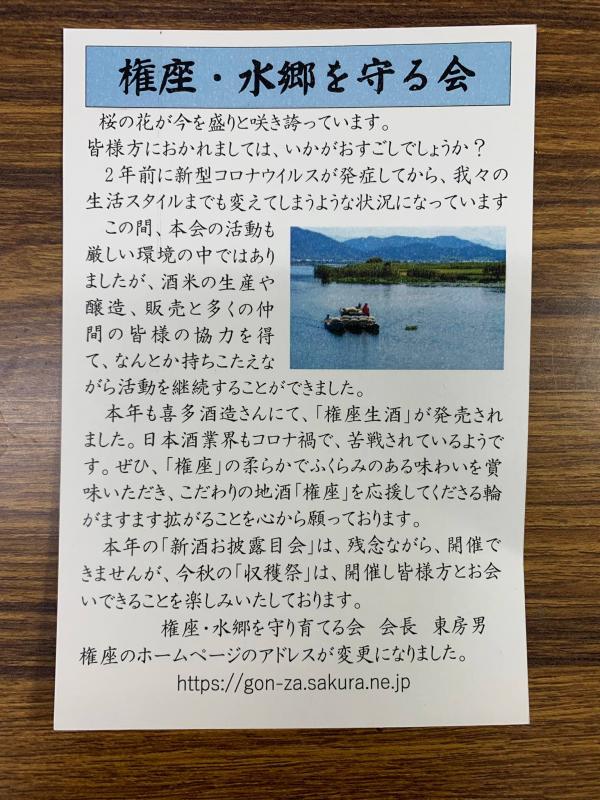 権座・水郷を守る会
桜の花が今を盛りと咲き誇っています。
皆様方におかれましては、いかがおすごしでしょうか？
2年前に新型コロナウイルスが発症してから、我々の
生活スタイルまでも変えてしまうような状況になっています
この間、本会の活動も
厳しい環境の中ではあり
ましたが、酒米の生産や
醸造、販売と多くの仲
間の皆様の協力を得
て、なんとか持ちこたえな
がら活動を継続することができました。
本年も喜多酒造さんにて、「権座生酒」が発売され
ました。日本酒業界もコロナ禍で、苦戦されているようで
す。ぜひ、「権座」の柔らかでふくらみのある味わいを賞
味いただき、こだわりの地酒「権座」を応援してくださる輪
がますます拡がることを心から願っております。
本年の「新酒お披露目会」は、残念ながら、開催で
きませんが、今秋の「収穫祭」は、開催し皆様方とお会
いできることを楽しみいたしております。
権座・水郷を守り育てる会　会長　東房男
権座のホームページのアドレスが変更になりました。
https://gon-za.sakura.ne.jp